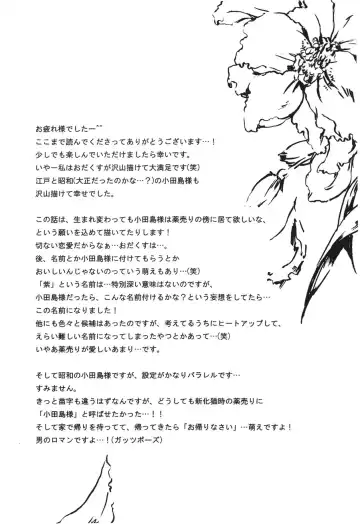 お疲れ様でしたー^^
ここまで読んでくださってありがとうございます…！
少しでも楽しんでいただけましたら幸いです。
いやー私はおだくすが沢山描けて大満足です(笑)
江戸と昭和(大正だったのかな…？)の小田島様も
沢山描けて幸せでした。
この話は、生まれ変わっても小田島様は薬売りの傍に居て欲しいな、
という願いを込めて描いてたりします！
切ない恋愛だからなぁ…おだくすは…。
後、名前とか小田島様に付けてもらうとか
おいしいんじゃないのっていう萌えもあり…(笑)
「紫」という名前は…特別深い意味はないのですが、
小田島様だったら、こんな名前付けるかな？という妄想をしてたら…
この名前になりました！
他にも色々と候補はあったのですが、考えてるうちにヒートアップして、
えらい難しい名前になってしまったやつとかあって…(笑)
いやあ薬売りが愛しいあまり…です。
そして昭和の小田島様ですが、設定がかなりパラレルです…
すみません。
きっと苗字も違うはずなんですが、どうしても新化猫時の薬売りに
「小田島様」と呼ばせたかった…！！
そして家で帰りを待ってて、帰ってきたら「お帰りなさい」…萌えですよ！
男のロマンですよ…！(ガッツポーズ)